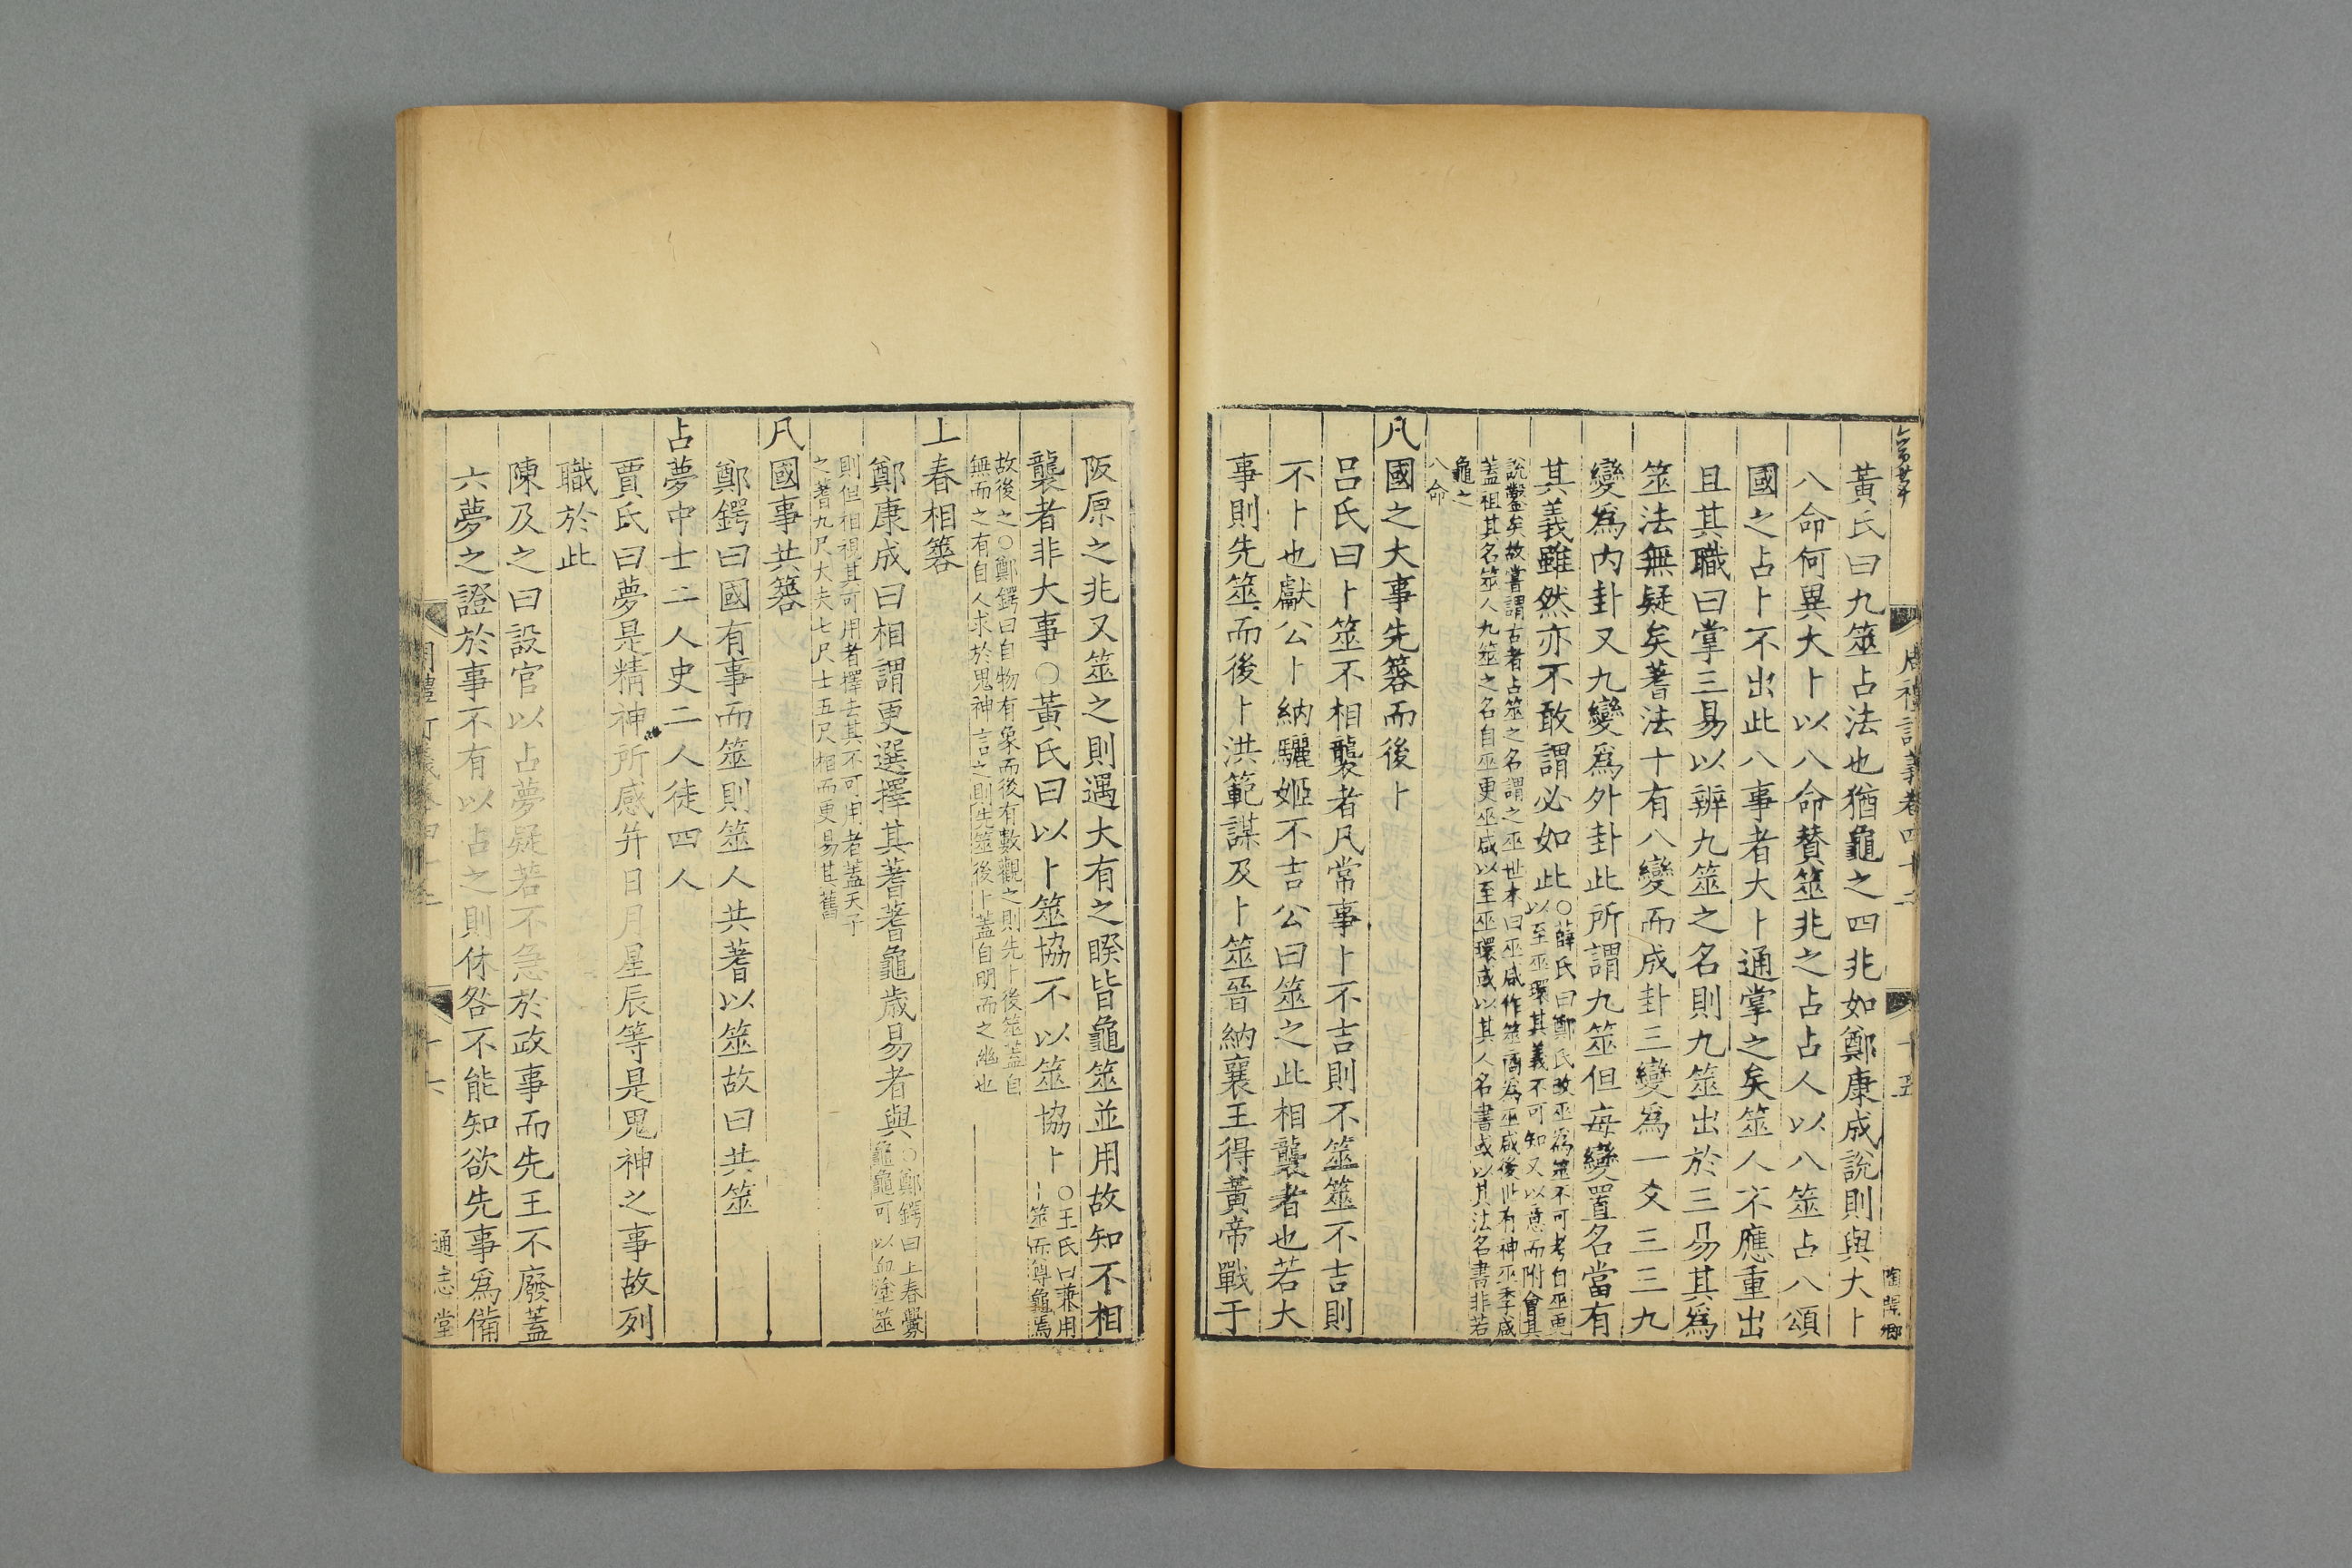 周禮訂義卷四十二
十五
陶閏卿
黃氏曰九筮占法也猶龜之四兆如鄭康成說則與大卜
八命何異大卜以八命賛筮兆之占占人以八筮占八頌
國之占卜不出此八事者大卜通掌之矣筮人不應重出
且其職曰掌三易以辨九筮之名則九筮出於三易其爲
筮法無疑矣蓍法十有八變而成卦三變爲一爻三三九
變爲内卦又九變爲外卦此所謂九筮但毎變置名當有
其義雖然亦不敢謂必如此
○薛氏曰鄭氏改巫爲筮不可考自巫更
以至巫環其義不可知又以意而附會其
說鑿矣故嘗謂古者占筮之名謂之巫世本曰巫咸作筮商爲巫咸後世有神巫季咸
蓋祖其名筮人九筮之名自巫更巫咸以至巫環或以其人名書或以其法名書非若
龜之
八命
凡國之大事先簭而後卜
呂氏曰卜筮不相襲者凡常事卜不吉則不筮筮不吉則
不卜也獻公卜納驪姬不吉公曰筮之此相襲者也若大
事則先筮而後卜洪範謀及卜筮晉納襄王得黃帝戰于
阪原之兆又筮之則遇大有之睽皆龜筮並用故知不相
襲者非大事○黃氏曰以卜筮協不以筮協卜
○王氏曰兼用
卜筮而尊龜焉
故後之○鄭鍔曰自物有象而後有數觀之則先卜後筮蓋自
無而之有自人求於鬼神言之則先筮後卜蓋自明而之幽也
上春相簭
鄭康成曰相謂更選擇其蓍蓍龜歲易者與
○鄭鍔曰上春釁
龜龜可以血塗筮
則但相視其可用者擇去其不可用者蓋天子
之蓍九尺大夫七尺士五尺相而更易其舊
凡國事共簭
鄭鍔曰國有事而筮則筮人共蓍以筮故曰共筮
占夢中士二人史二人徒四人
賈氏曰夢是精神所感并日月星辰等是鬼神之事故列
職於此
陳及之曰設官以占夢疑若不急於政事而先王不廢蓋
六夢之證於事不有以占之則休咎不能知欲先事爲備
周禮訂義卷四十二
十六
通志堂